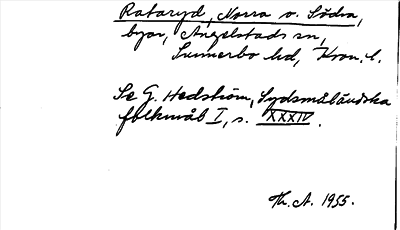 Rataryd, Norra o. Södra,
byar, Angelstads sn,
Sunnerbo hd, Kron. l.
Se G. Hedström, Sydsmåländska
folkmål I, s. XXXIV.
Th. A. 1955.